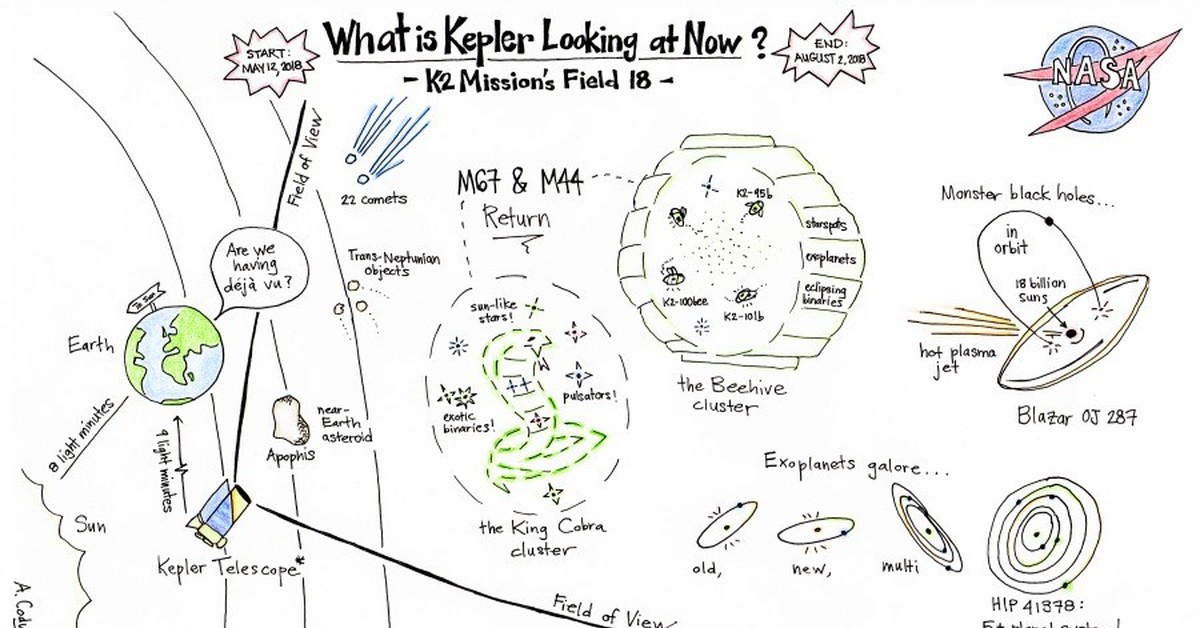 START:
MAY 12, 2018
What is Kepler Looking at Now?
- K2 Mission's Field 18 -
END:
AUGUST 2, 2018
NASA
Field of View
22 comets
M67 & M44
Return
K2-95b
starspots
exoplanets
eclipsing
binaries
K2-100bee
K2-101b
the Beehive
cluster
Monster black holes...
in
orbit
18 billion
suns
hot plasma
jet
Blazar OJ 287
Are we
having
déjà vu?
Trans-Neptunian
objects
Earth
sun-like
stars!
pulsators!
exotic
binaries!
the King Cobra
cluster
near-
Earth
asteroid
Apophis
8 light minutes
9 light minutes
Sun
Kepler Telescope*
Field of View
Exoplanets galore...
old,
new,
multi
HIP 41378:
A. Cody